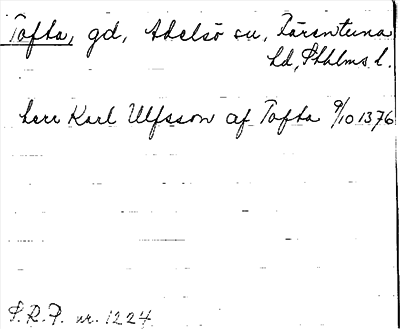 Tofta, gd, Adelsö sn, Färentuna
hd, Sthlms l.
herr Karl Ulfsson af Tofta 9/10 1376
S.R.P. nr. 1224